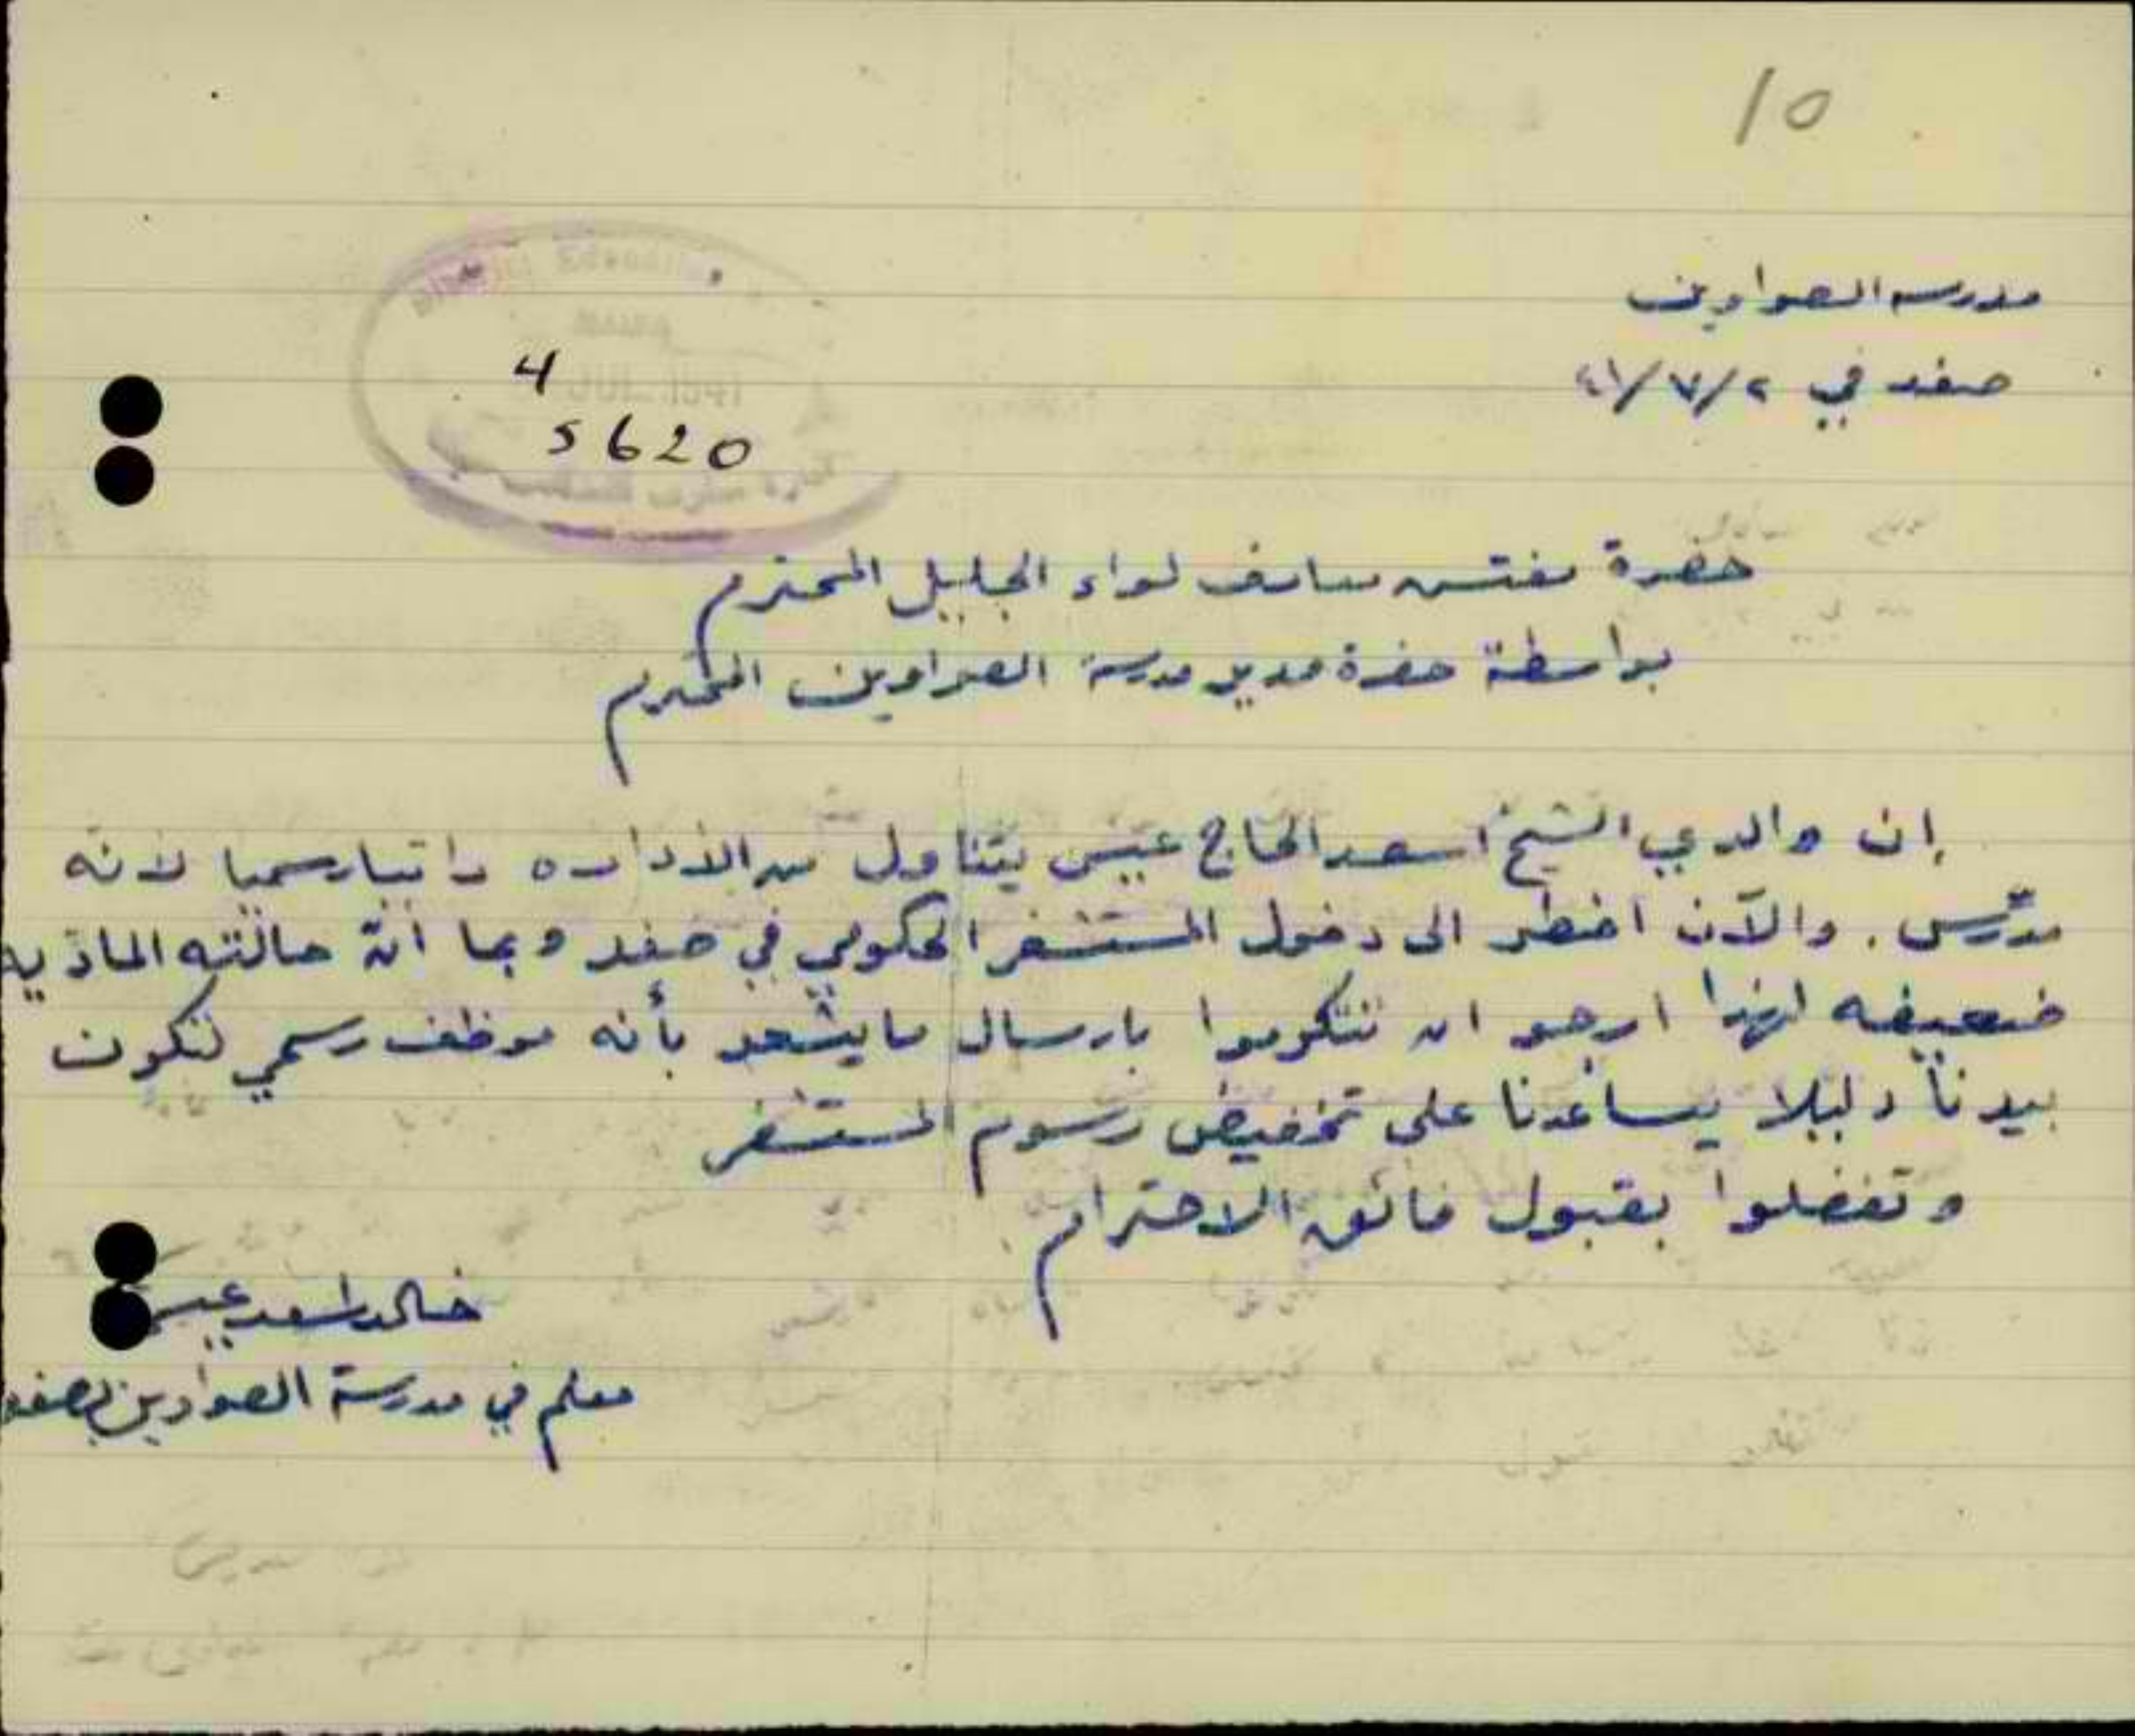 10
مدرسه الصواوين
صفد في ٤١/٧/٢
4
JUL 1941
5620
حضرة مفتش معارف لواء الجليل المحترم
بواسطة حضرة مدير مدرسة الصواوين المحترم
إن والدي الشيخ اسعد الحاج عيسى يتناول من الاداره راتبا رسميا لانه
مدّرس . والآن اضطر الى دخول المستشفى الحكومي في صفد وبما أنّ حالته الماديه
ضعيفه لهذا ارجو ان تتكرموا بارسال ما يشعر بأنه موظف رسمي لتكون
بيدنا دليلا يساعدنا على تخفيض رسوم المستشفى
وتفضلوا بقبول فائق الاحترام
خالد اسعد عيسى
معلم في مدرسة الصواوين بصفد